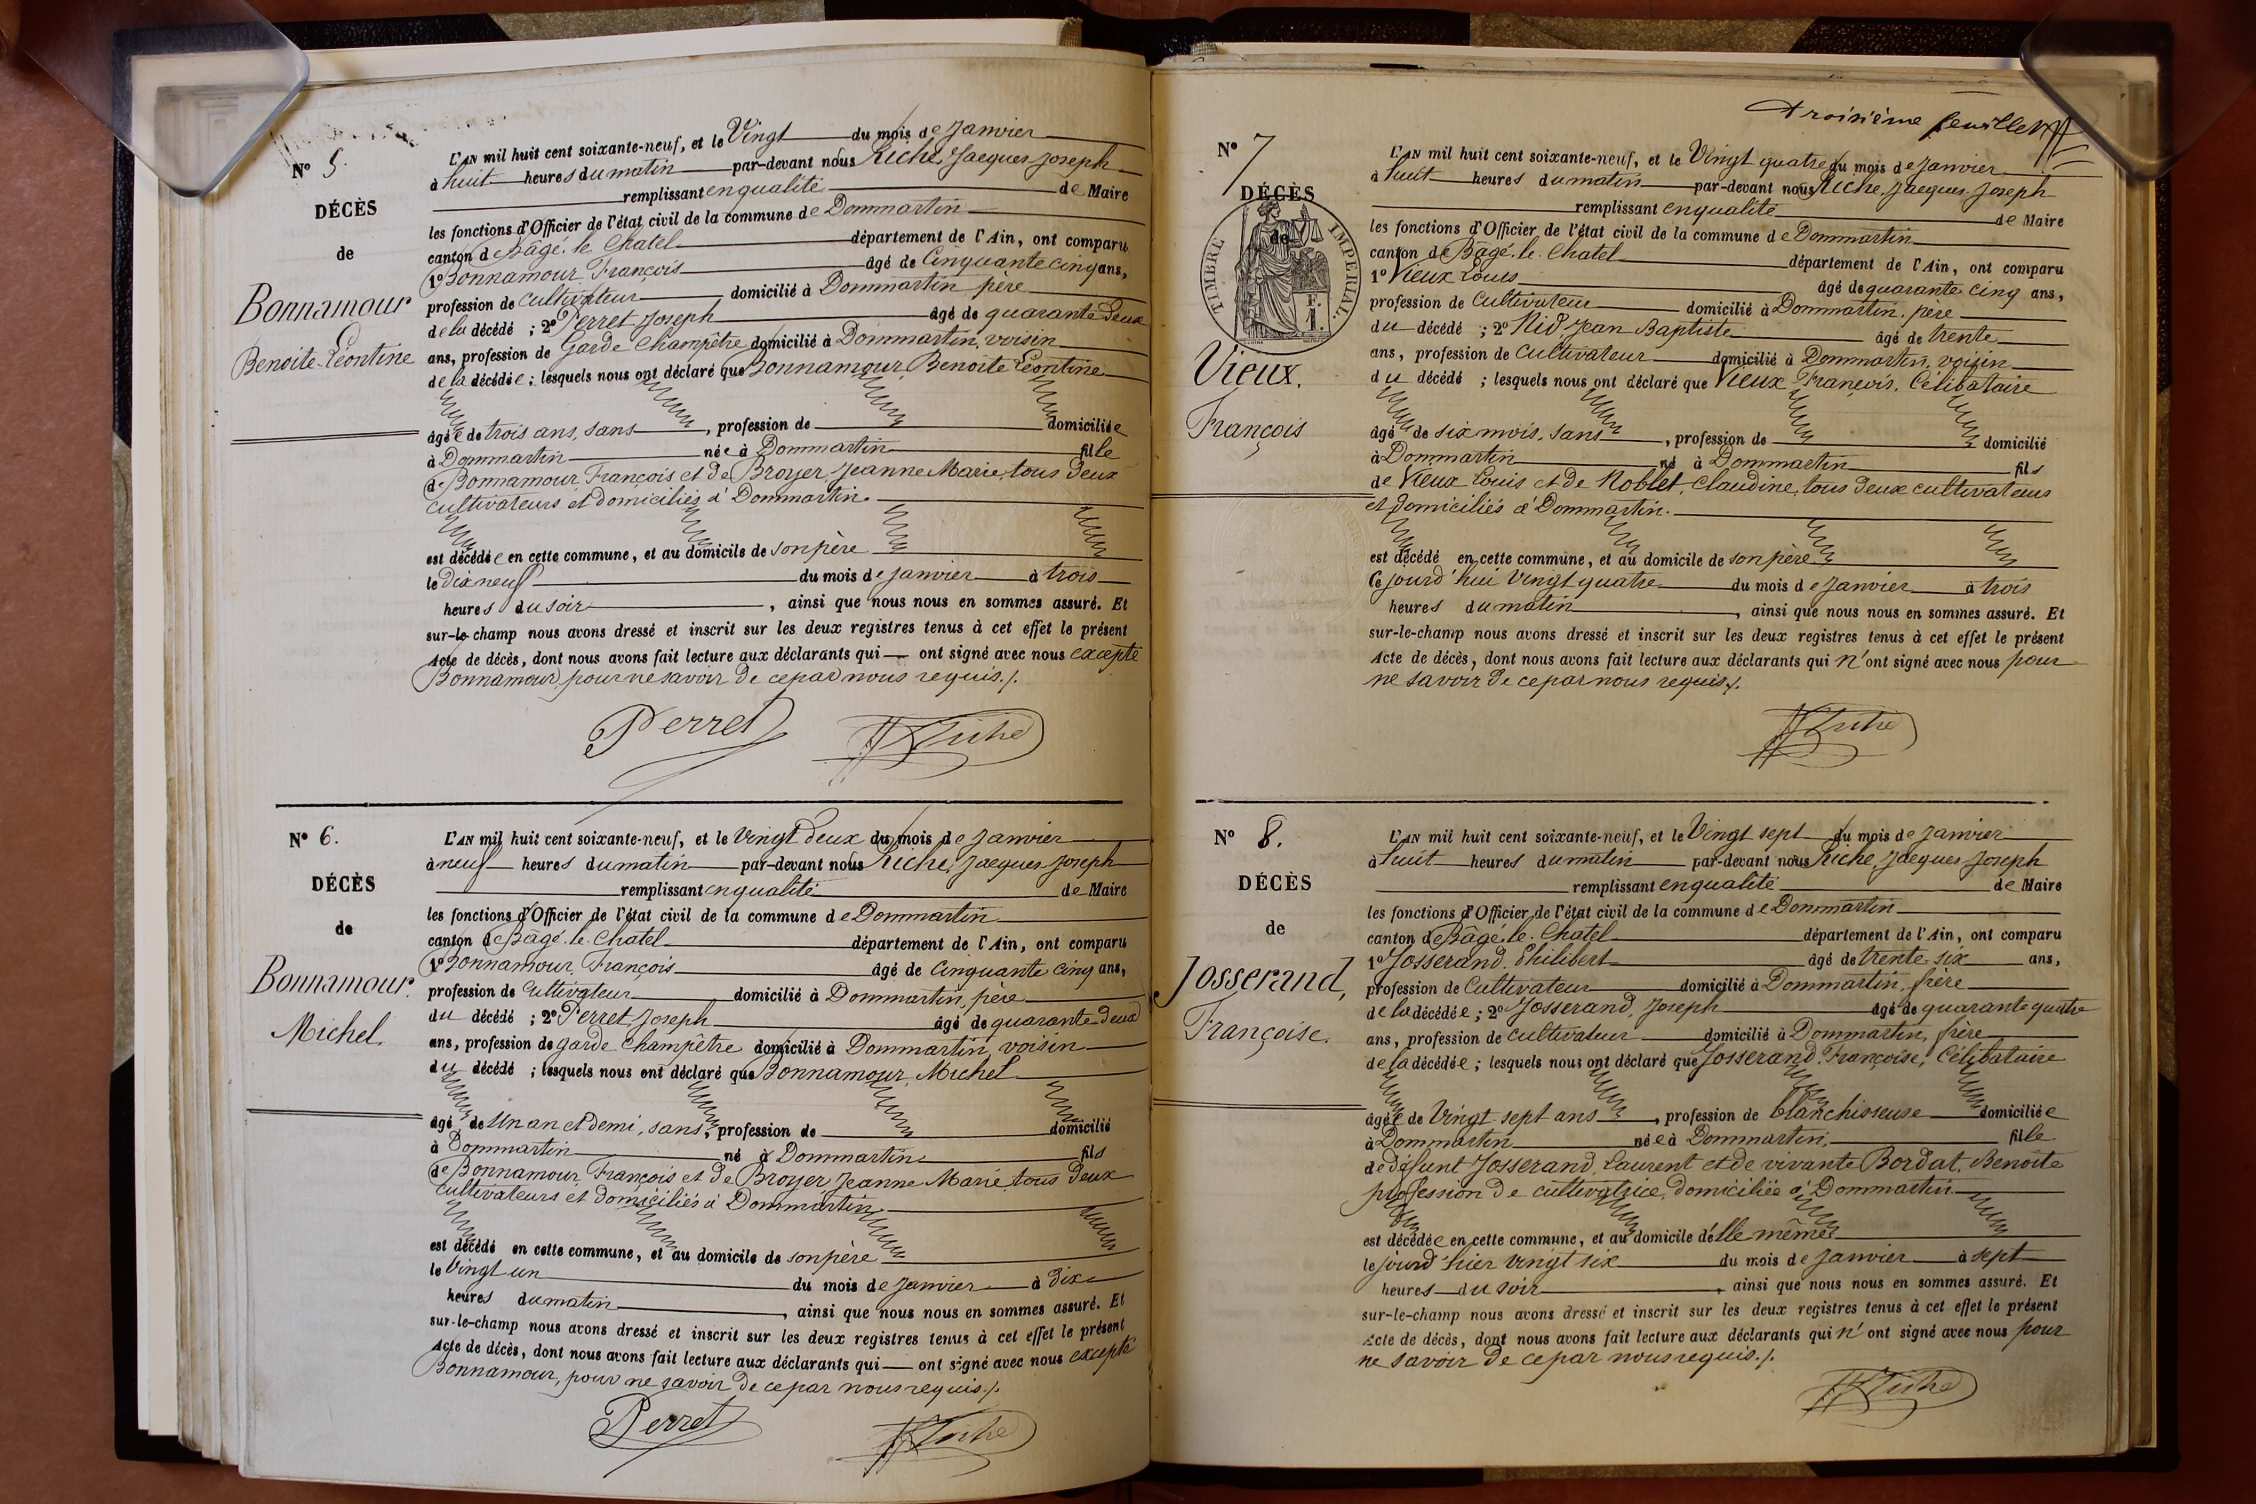 N° 5.
DÉCÈS
de
Bonnamour
Benoite-Léontine
L'AN mil huit cent soixante-neuf, et le Vingt du mois de Janvier
à huit heures du matin par-devant nous Riche, Jacques Joseph
remplissant en qualité de Maire
les fonctions d'Officier de l'état civil de la commune de Dommartin
canton de Bâgé-le-Chatel département de l'Ain, ont comparu
1° Bonnamour François âgé de Cinquante cinq ans,
profession de cultivateur domicilié à Dommartin père
de la décédé ; 2° Perret Joseph âgé de quarante deux
ans, profession de Garde Champêtre domicilié à Dommartin, voisin
de la décédée ; lesquels nous ont déclaré que Bonnamour, Benoite Léontine
âgée de trois ans, sans , profession de domiciliée
à Dommartin née à Dommartin fille
de Bonnamour François et de Broyer Jeanne Marie, tous deux
cultivateurs et domiciliés à Dommartin.
est décédée en cette commune, et au domicile de son père
le dix neuf du mois de Janvier à trois
heures du soir , ainsi que nous nous en sommes assuré. Et
sur-le-champ nous avons dressé et inscrit sur les deux registres tenus à cet effet le présent
Acte de décès, dont nous avons fait lecture aux déclarants qui — ont signé avec nous excepté
Bonnamour, pour ne savoir de ce par nous requis ./.
Perret Riche
N° 6.
DÉCÈS
de
Bonnamour.
Michel.
L'AN mil huit cent soixante-neuf, et le Vingt deux du mois de Janvier
à neuf heures du matin par-devant nous Riche, Jacques Joseph
remplissant en qualité de Maire
les fonctions d'Officier de l'état civil de la commune de Dommartin
canton de Bâgé-le-Chatel département de l'Ain, ont comparu
1° Bonnamour, François âgé de Cinquante cinq ans,
profession de Cultivateur domicilié à Dommartin, père
du décédé ; 2° Perret Joseph âgé de quarante deux
ans, profession de garde Champêtre domicilié à Dommartin, voisin
du décédé ; lesquels nous ont déclaré que Bonnamour, Michel
âgé de Un an et demi, sans, profession de domicilié
à Dommartin né à Dommartin fils
de Bonnamour, François et de Broyer Jeanne Marie, tous deux
cultivateurs et domiciliés à Dommartin.
est décédé en cette commune, et au domicile de son père
le Vingt un du mois de Janvier à dix
heures du matin , ainsi que nous nous en sommes assuré. Et
sur-le-champ nous avons dressé et inscrit sur les deux registres tenus à cet effet le présent
Acte de décès, dont nous avons fait lecture aux déclarants qui — ont signé avec nous excepté
Bonnamour, pour ne savoir de ce par nous requis ./.
Perret Riche
Troisième feuillet
N° 7
DÉCÈS
de
TIMBRE IMPÉRIAL.
Vieux.
François
L'AN mil huit cent soixante-neuf, et le Vingt quatre du mois de Janvier
à huit heures du matin par-devant nous Riche, Jacques Joseph
remplissant en qualité de Maire
les fonctions d'Officier de l'état civil de la commune de Dommartin
canton de Bâgé-le-Chatel département de l'Ain, ont comparu
1° Vieux Louis âgé de quarante cinq ans,
profession de Cultivateur domicilié à Dommartin, père
du décédé ; 2° Nid Jean Baptiste âgé de trente
ans, profession de cultivateur domicilié à Dommartin, voisin
du décédé ; lesquels nous ont déclaré que Vieux François, Célibataire
âgé de six mois, sans , profession de domicilié
à Dommartin né à Dommartin fils
de Vieux Louis et de Noblet, Claudine, tous deux cultivateurs
et domiciliés à Dommartin.
est décédé en cette commune, et au domicile de son père
Ce jourd'hui Vingt quatre du mois de Janvier à trois
heures du matin , ainsi que nous nous en sommes assuré. Et
sur-le-champ nous avons dressé et inscrit sur les deux registres tenus à cet effet le présent
Acte de décès, dont nous avons fait lecture aux déclarants qui n'ont signé avec nous pour
ne savoir de ce par nous requis ./.
Riche
N° 8.
DÉCÈS
de
Josserand,
Françoise.
L'AN mil huit cent soixante-neuf, et le Vingt sept du mois de Janvier
à huit heures du matin par-devant nous Riche, Jacques Joseph
remplissant en qualité de Maire
les fonctions d'Officier de l'état civil de la commune de Dommartin
canton de Bâgé-le-Chatel département de l'Ain, ont comparu
1° Josserand, Philibert âgé de trente six ans,
profession de Cultivateur domicilié à Dommartin, frère
de la décédée ; 2° Josserand, Joseph âgé de quarante quatre
ans, profession de cultivateur domicilié à Dommartin, frère
de la décédée ; lesquels nous ont déclaré que Josserand, Françoise, Célibataire
âgée de Vingt sept ans , profession de blanchisseuse domiciliée
à Dommartin née à Dommartin, fille
de défunt Josserand, Laurent et de vivante Bordat, Benoite
profession de cultivatrice, domiciliée à Dommartin
est décédée en cette commune, et au domicile d'élle même
le jourd'hier Vingt six du mois de Janvier à sept
heures du soir , ainsi que nous nous en sommes assuré. Et
sur-le-champ nous avons dressé et inscrit sur les deux registres tenus à cet effet le présent
Acte de décès, dont nous avons fait lecture aux déclarants qui n'ont signé avec nous pour
ne savoir de ce par nous requis ./.
Riche